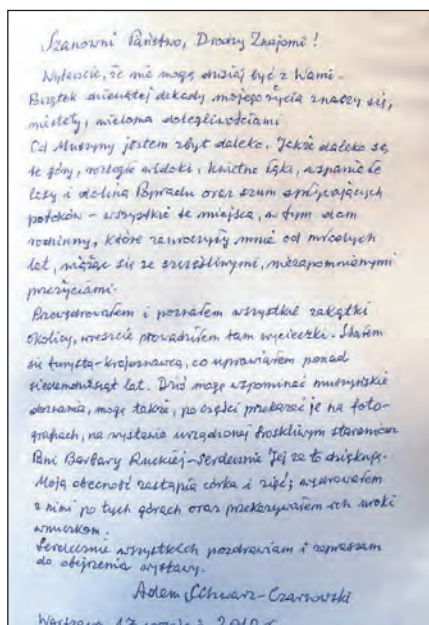 Szanowni Państwo, Drodzy Znajomi!
Wybaczcie, że nie mogę dzisiaj być z Wami.
Początek dziewiątej dekady mojego życia znaczy się,
niestety, wieloma dolegliwościami.
Od Muszyny jestem zbyt daleko. Jakże daleko są
te góry, rozległe widoki, kwietne łąki, wspaniałe
lasy i dolina Popradu oraz szum spływających
potoków – wszystkie te miejsca, w tym dom
rodzinny, które zauroczyły mnie od młodych
lat, wiążąc się ze szczęśliwymi, niezapomnianymi
przeżyciami.
Przewędrowałem i poznałem wszystkie zakątki
okolicy, wreszcie prowadziłem tam wycieczki. Stałem
się turystą-krajoznawcą, co uprawiałem ponad
siedemdziesiąt lat. Dziś mogę wspominać muszyńskie
doznania, mogę także, po części przekazać je na foto-
grafiach, na wystawie urządzonej troskliwym staraniem
Pani Barbary Ruckiej – serdecznie Jej za to dziękuję.
Moją obecność zastąpią córka i zięć; wędrowałem
z nimi po tych górach oraz przekazywałem ich uroki
wnuczkom.
Serdecznie wszystkich pozdrawiam i zapraszam
do obejrzenia wystawy.
Adam Schwarz-Czarnowski
Warszawa 17